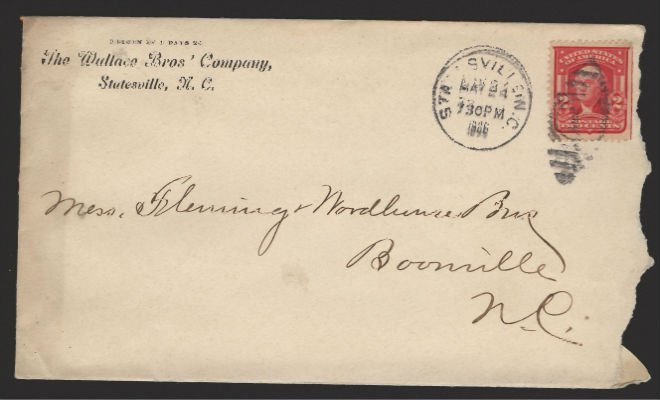 RETURN IN 5 DAYS TO
The Wallace Bros' Company,
Statesville, N. C.
STATESVILLE, N.C.
MAY 24
730PM
1906
UNITED STATES
OF AMERICA
2
POSTAGE
TWO CENTS
Mess. Fleming & Woodhouse Bros
Boonville
N.C.